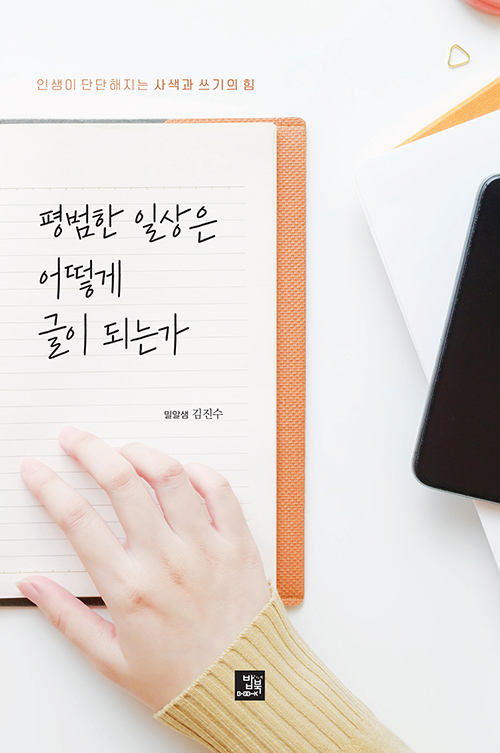 인생이 단단해지는 사색과 쓰기의 힘
평범한 일상은
어떻게
글이 되는가
밀알샘 김진수
밥북
B·OB·OO·K